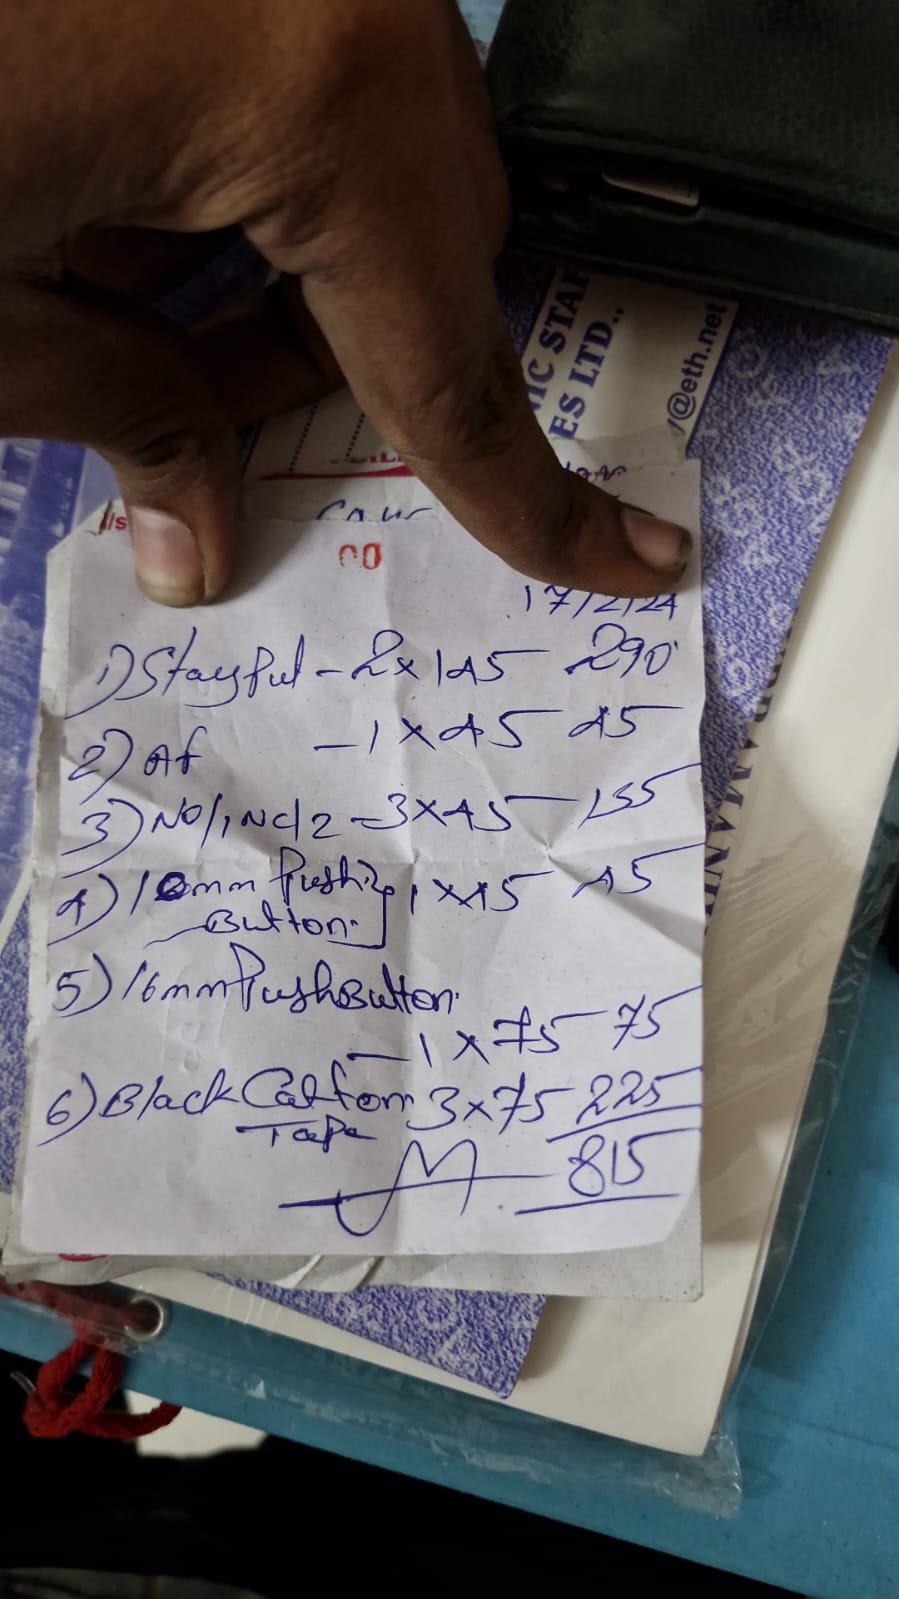 IC STAR
ES LTD..
y@eth.net
/s
00
17/2/24
1) Stayput - 2 x 145 290
2) Af - 1 x 45 45
3) NO/1, NC/2 - 3 x 45 - 135
4) 10mm Push
Button. 1 x 45 45
5) 16mm Push Button.
- 1 x 75 75
6) Black Cotton 3 x 75 225
Tape
815